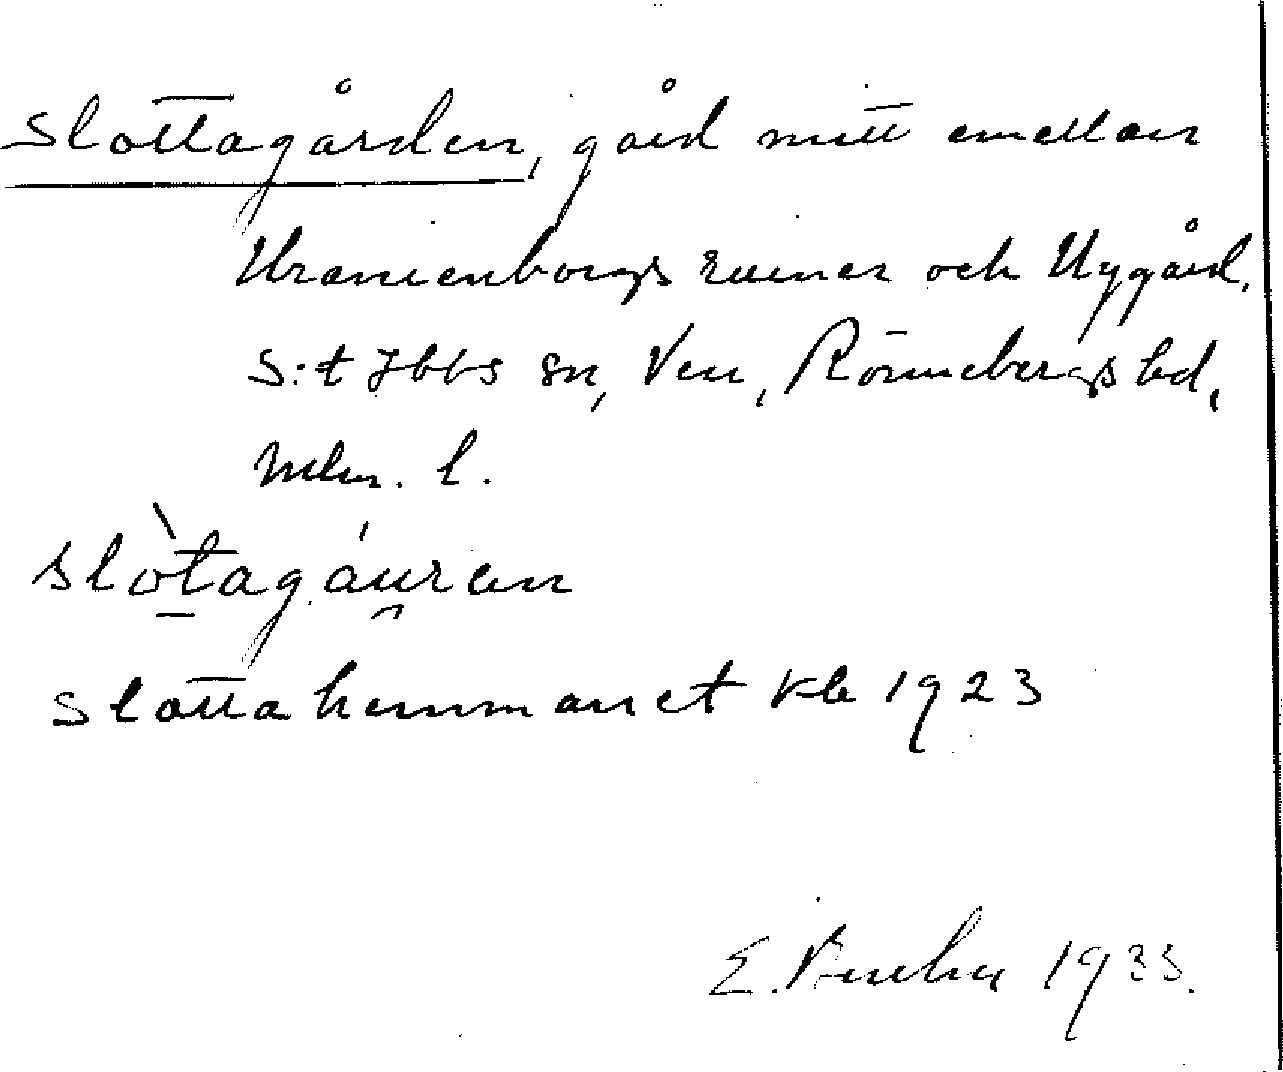 Slottagården, gård mitt emellan
Uranienborgs ruiner och Nygård,
S:t Ibbs sn, Ven, Rönnebergs hd,
Mlm. l.
slòtagáuṙan
Slottahemmanet 1923
E. 1933.